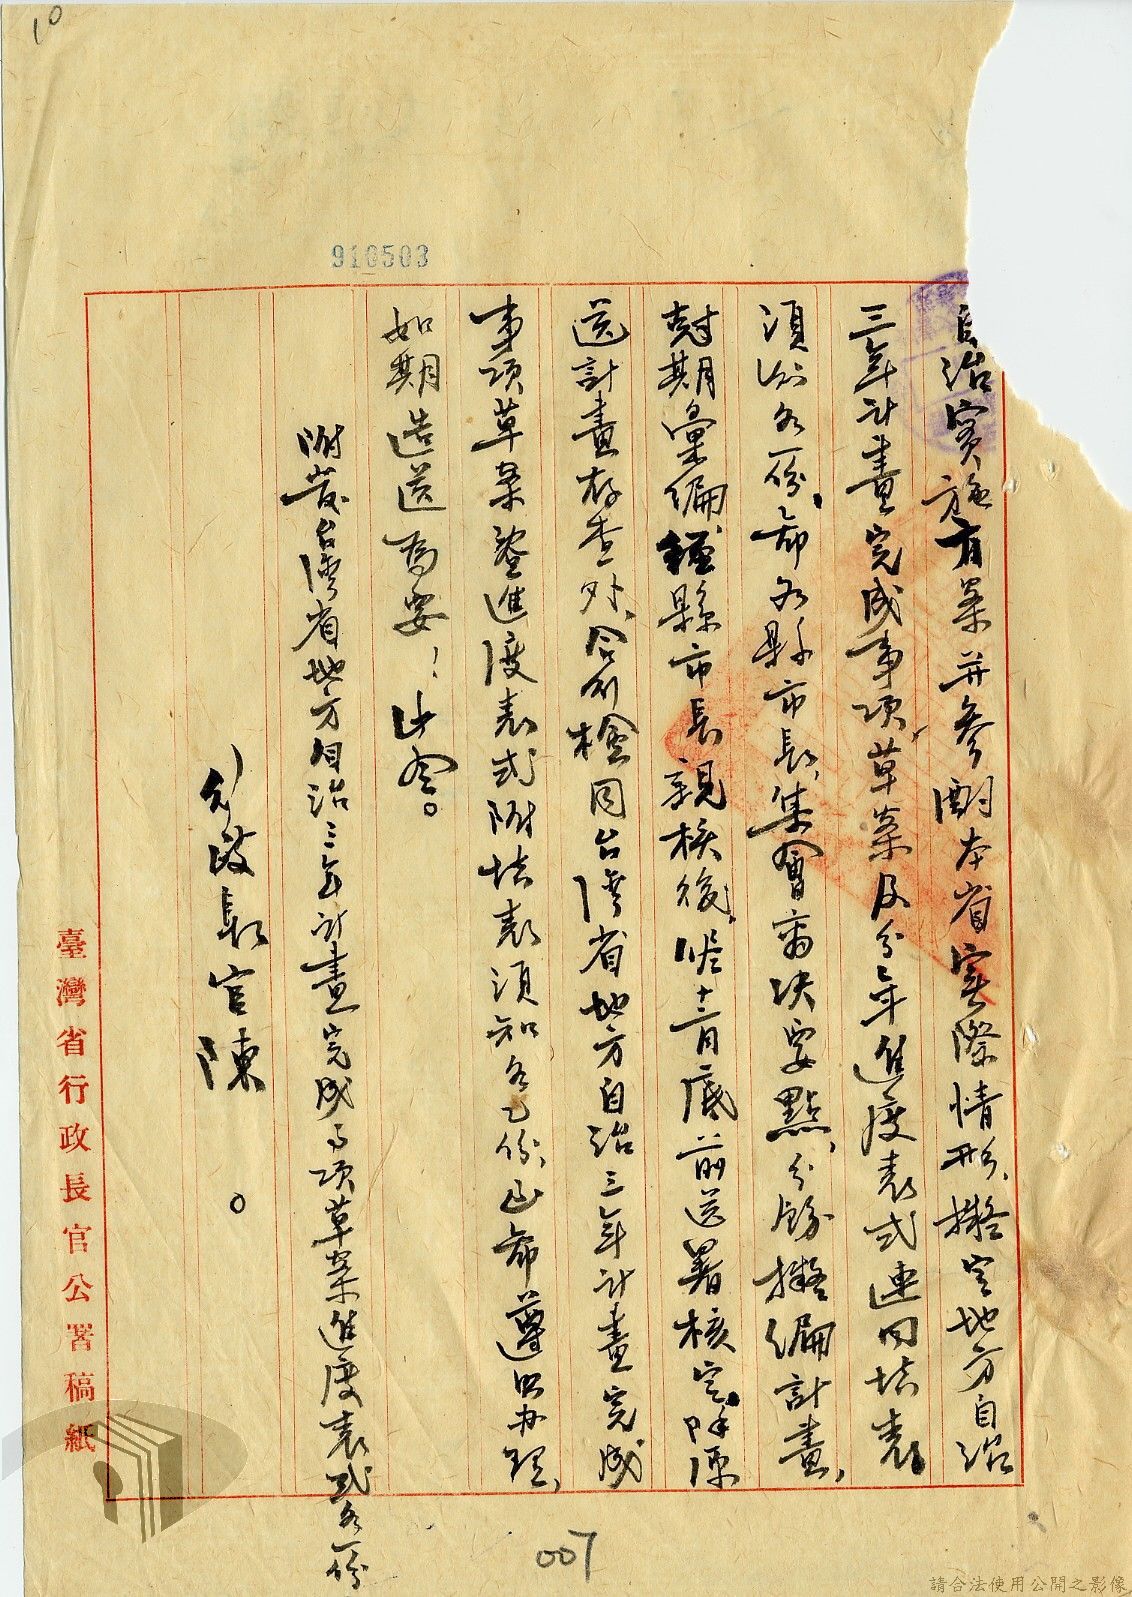 10
910503
自治實施有案并參酌本省實際情形、擬定地方自治
三年計畫完成事項草案及分年進度表式連同填表
須知各一份、希各縣市長集會商決要點、分飭擬編計畫、
尅期彙編經縣市長親核後、於十二月底前送署核定、除原
送計畫存查外、合行檢同台灣省地方自治三年計畫完成
事項草案暨進度表式附填表須知各乙份、 希遵照办理、
如期造送為要！此令。
附發台灣省地方自治三年計畫完成事項草案進度表式各一份
行政長官陳 。
臺灣省行政長官公署稿紙
007
請合法使用公開之影像